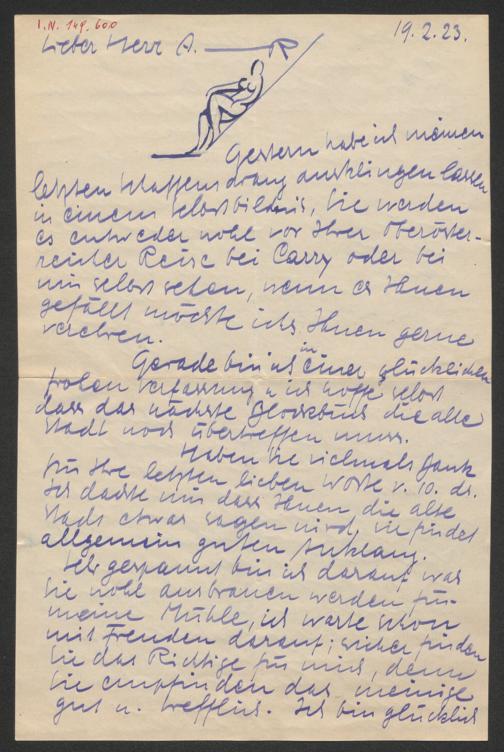 I.N. 149.600
19.2.23.
Lieber Herr A.
Gestern habe ich meinen
letzten Schaffensdrang ausklingen lassen
in einem Selbstbildnis, Sie werden
es entweder wohl vor Ihrer Oberöster-
reicher Reise bei Carry oder bei
mir selbst sehen, wenn es Ihnen
gefällt möchte ichs Ihnen gerne
verehren.
Gerade bin ich in einer glücklichen
frohen Verfassung u ich hoffe selbst
dass das nächste Blockbuch die alte
Stadt noch übertreffen muss.
Haben Sie vielmals Dank
für Ihre letzten lieben Worte v. 10. ds.
Ich dachte mir dass Ihnen die alte
Stadt etwas sagen wird, sie findet
allgemein guten Anklang.
Sehr gespannt bin ich darauf was
Sie wohl ausbrauen werden für
meine Mühle, ich warte schon
mit Freuden darauf; sicher finden
Sie das Richtige für mich, denn
Sie empfinden das meinige
gut u. trefflich. Ich bin glücklich